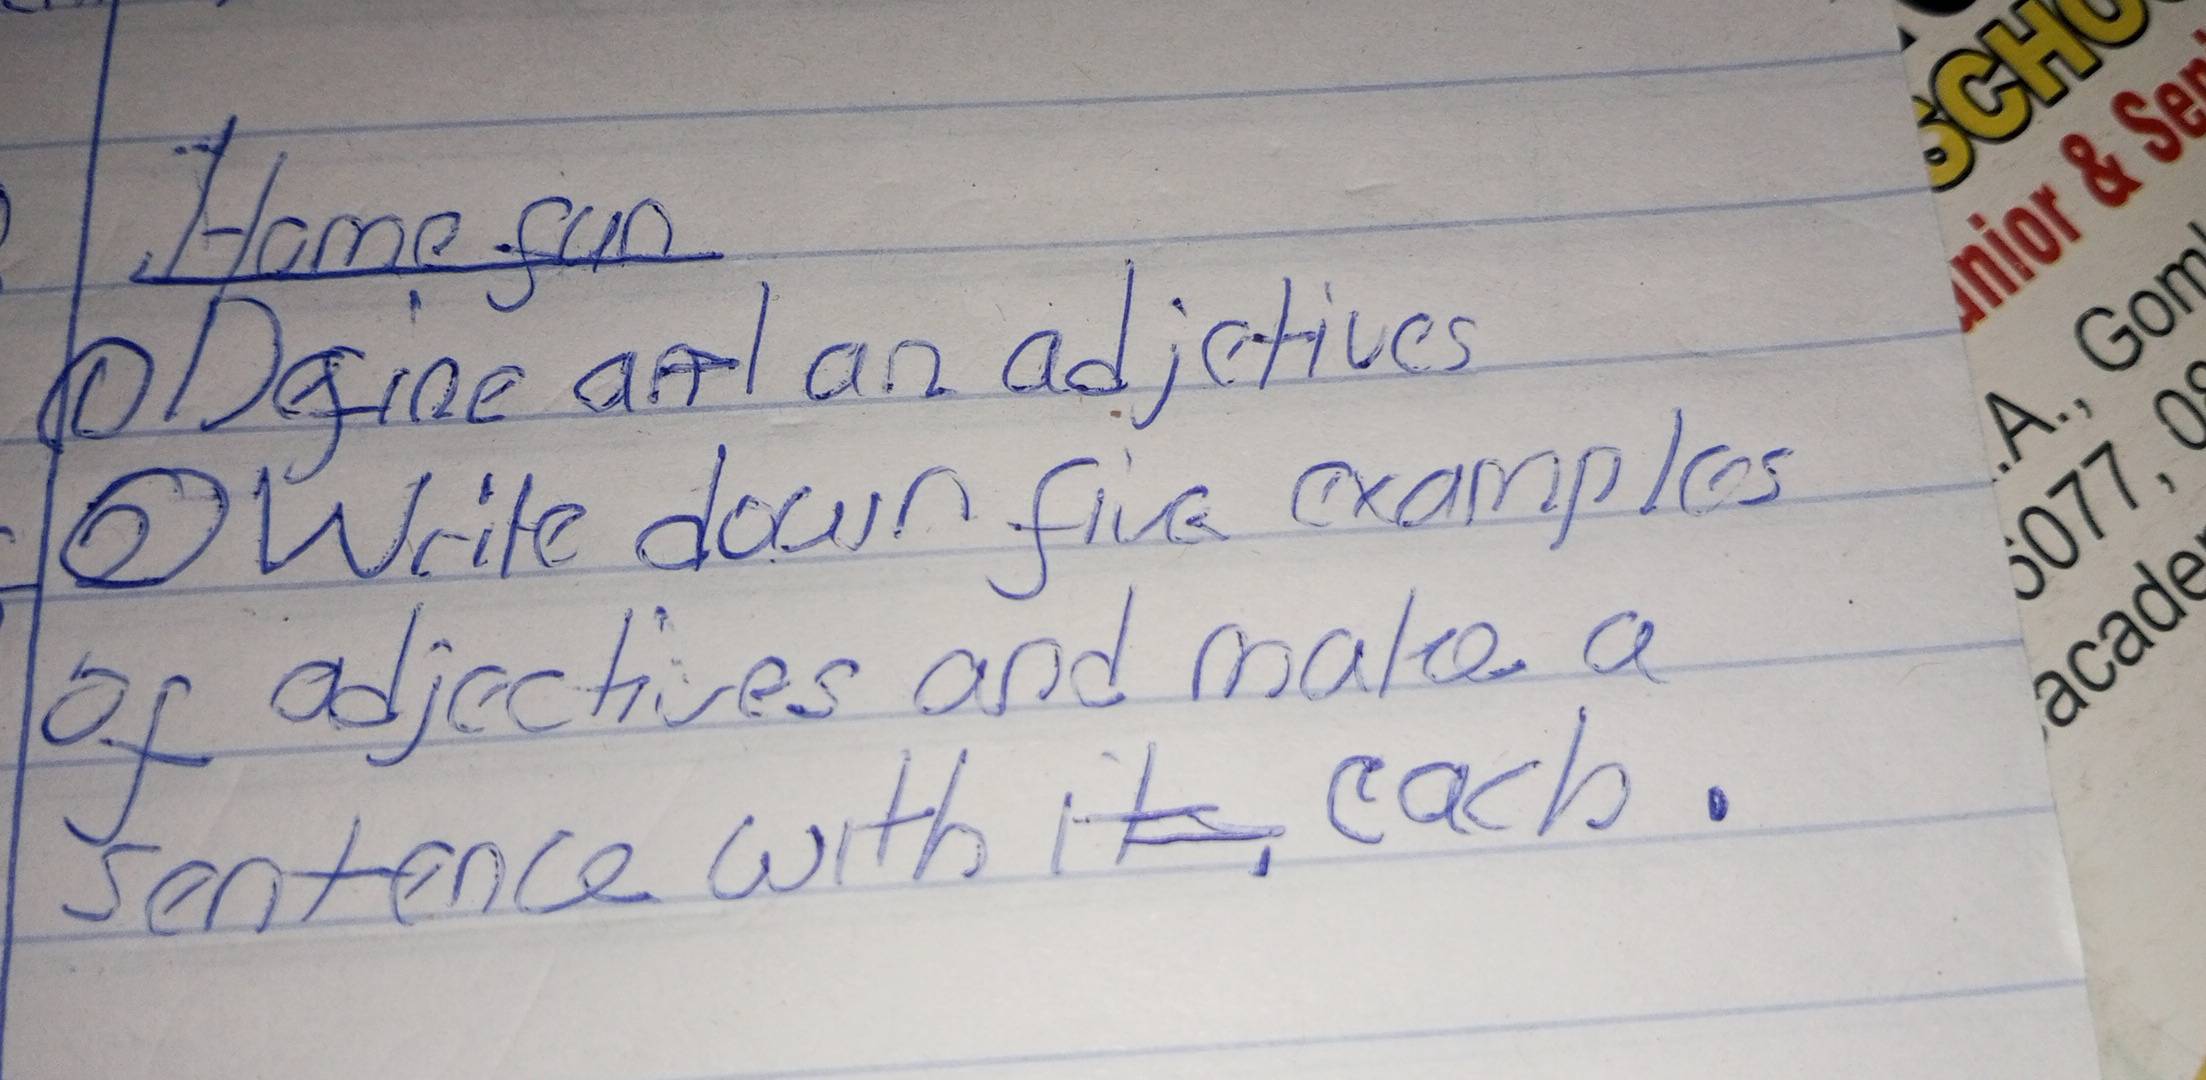 Home fun
① Define an adjctives
② Write down five examples
of adjectives and make a
sentence with each.
SCHO
unior & Sen
.A., Gom
5077, 08
acade